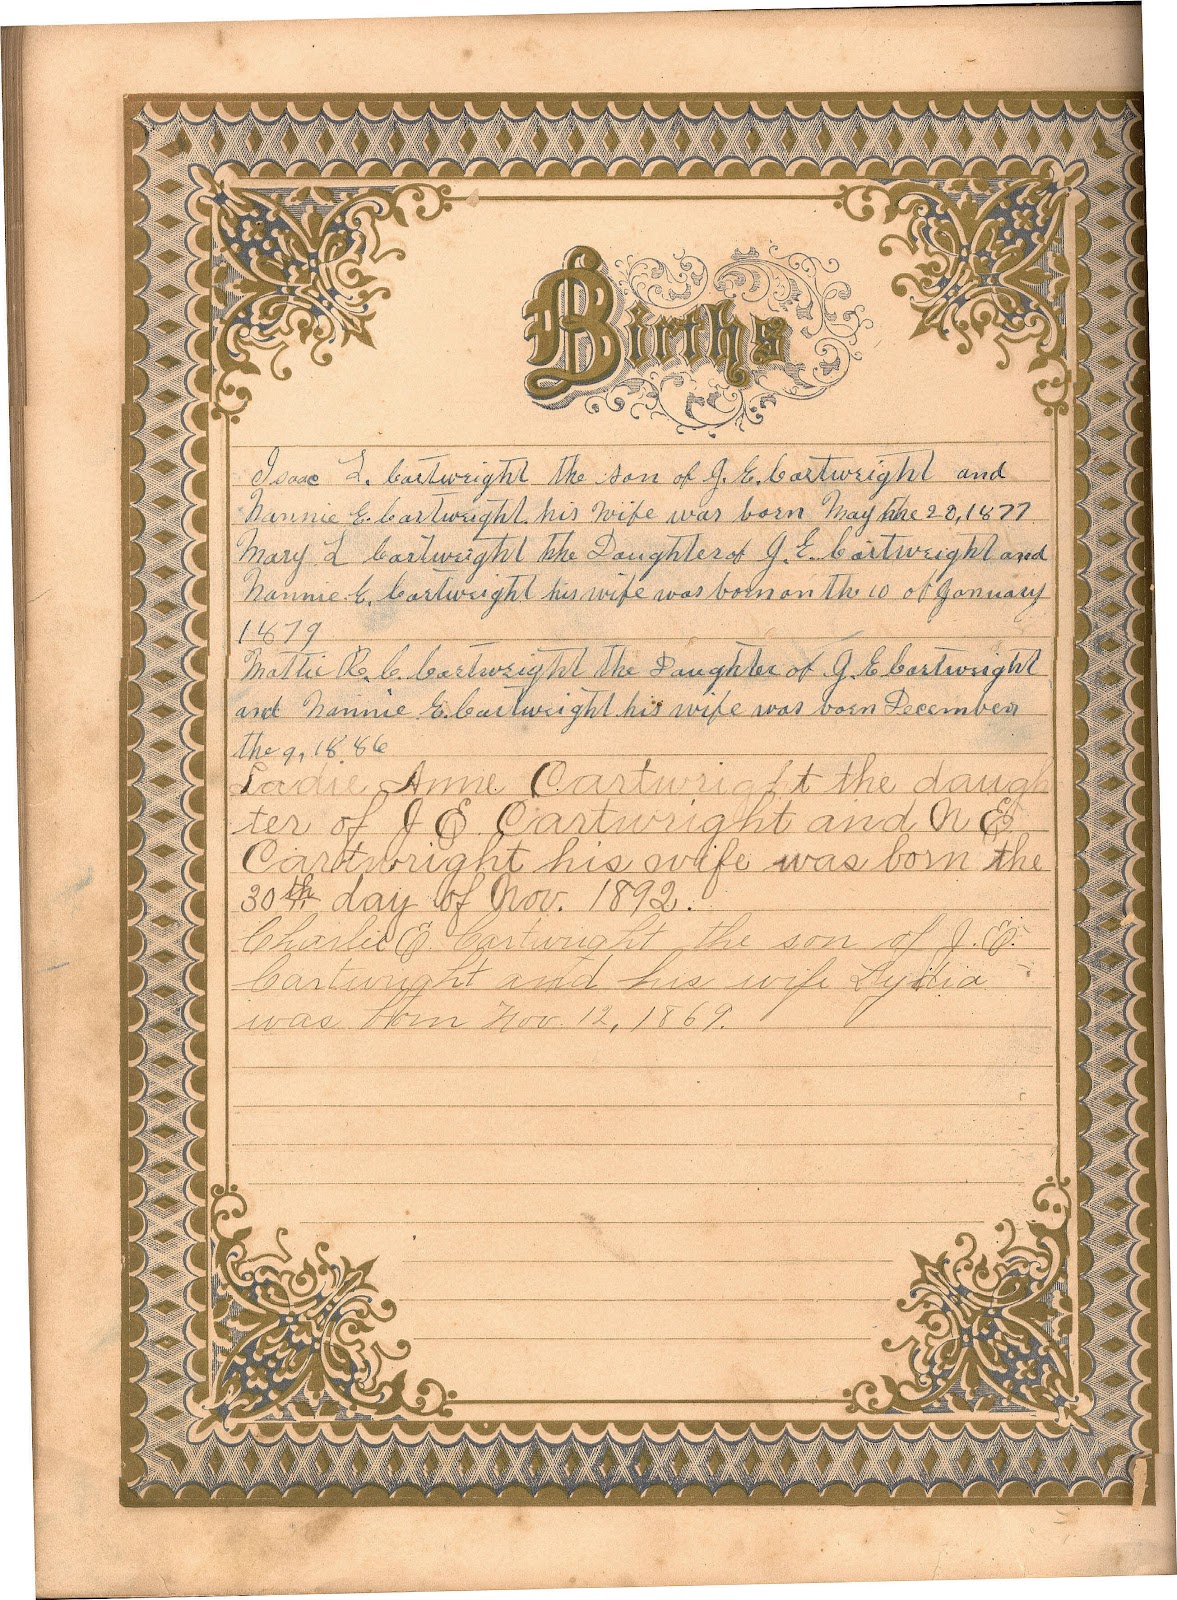 Births
Isaac L. Cartwright the son of J. E. Cartwright and
Nannie E. Cartwright his Wife was born May the 28, 1877
Mary L Cartwright the Daughter of J. E. Cartwright and
Nannie E. Cartwright his wife was born on the 10 of January
1879
Mattie R. C. Cartwright the Daughter of J. E Cartwright
and Nannie E. Cartwright his wife was born December
the 9, 1886
Anne Cartwright the daugh
ter of J E Cartwright and N E
Cartwright his wife was born the
30th day of Nov. 1892.
Charlie E Cartwright the son of J. E.
Cartwright and his wife Lydia
was born Nov 12, 1869.